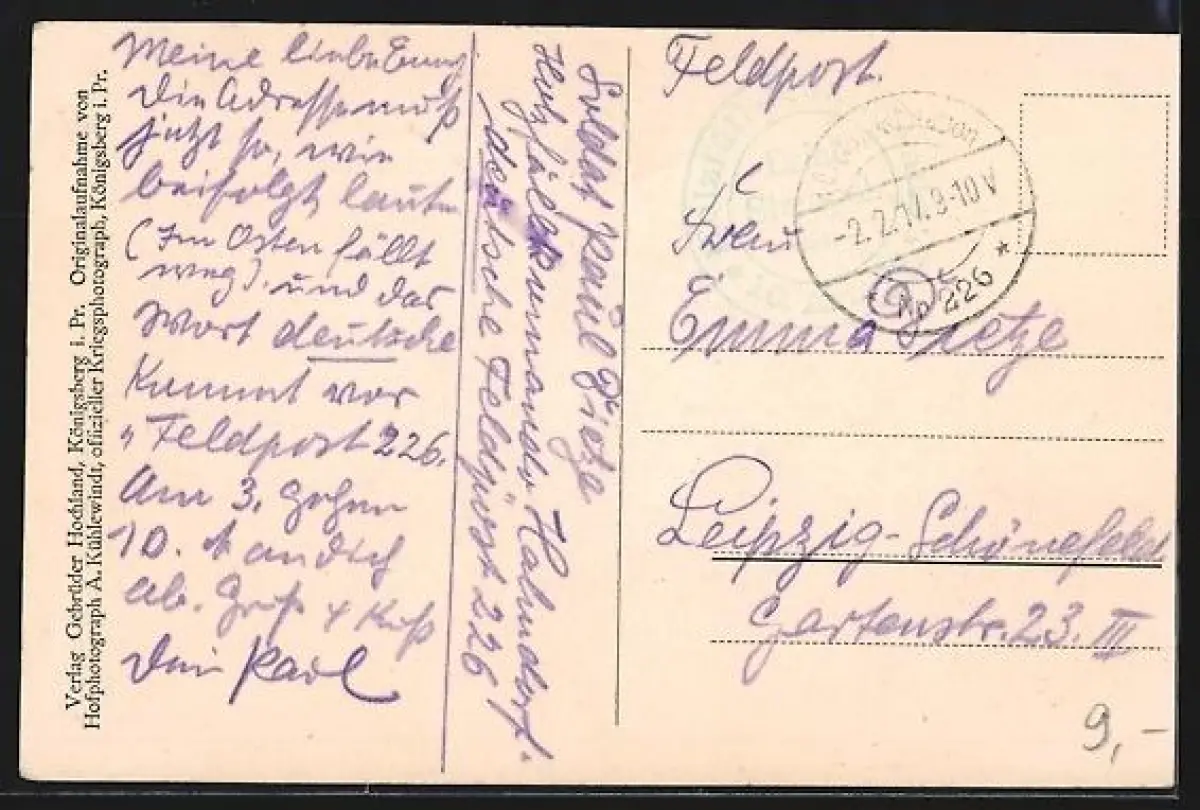 Verlag Gebrüder Hochland, Königsberg i. Pr. Originalaufnahme von
Hofphotograph A. Kühlewindt, offizieller Kriegsphotograph, Königsberg i. Pr.
Meine liebe
Die Adresse muß
jetzt so, wie
beifolgt lauten
(Im Osten fällt
weg). und das
Wort deutsche
kommt vor
"Feldpost 226.
Am 3. gehen
10. M an dich
ab. Gruß & Kuß
Dein Paul
Soldat Paul Dietze
deutsche Feldpost 226
Feldpost.
-2.2.17.9-10V
226 *
Frau
Emma Dietze
Leipzig-Schönefeld
Gartenstr. 23. III
9,-